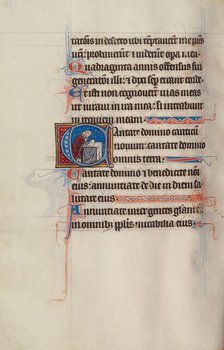 tationis in deserto ubi temptauerunt me patres
uri: probauerunt et uiderunt opera mea.
Quadraginta annis offensus fui
generationi illi: et dixi semper errant corde.
Et isti non cognouerunt uias meas
ut iuraui in ira mea: si intrabunt
in requiem meam.
Cantate domino canticum
nouum: cantate domino
omnis terra.
Cantate domino et benedicite nomini
eius: annuntiate de die in diem salu
tare eius.
Annuntiate inter gentes gloriam eius
in omnibus populis mirabilia eius.